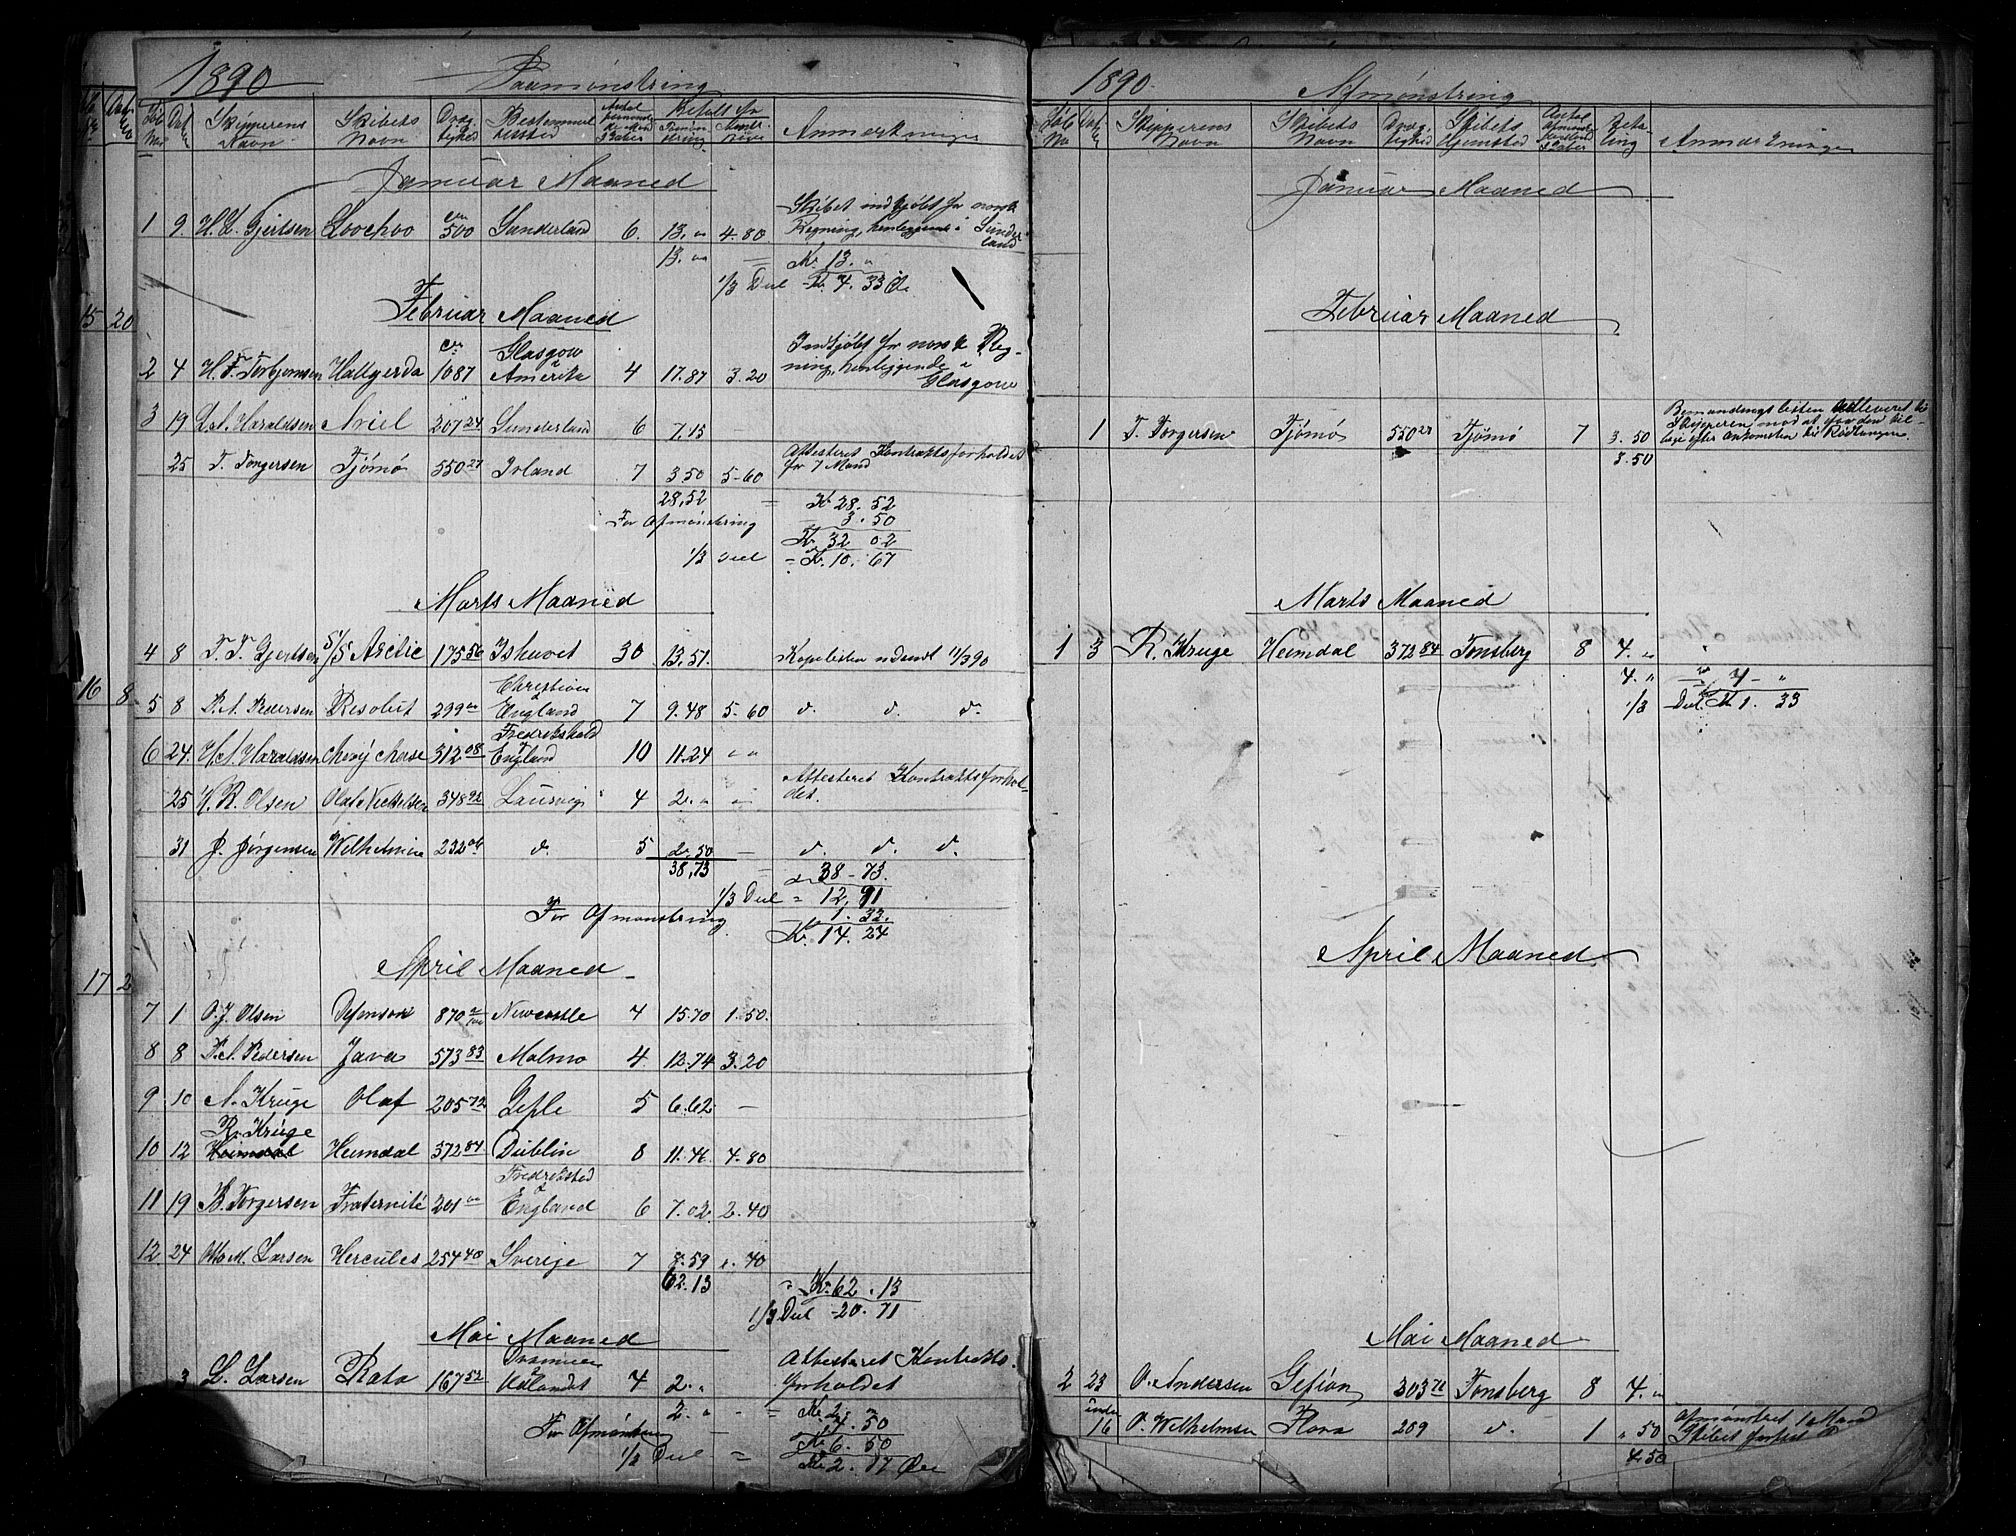 1890 Paamønstring
Skipperens Navn Skibets Navn Drægtighed Bestemmelsessted Betalt for Anmærkninger
Januar Maaned
1 9 H. L. Gjertsen Loochoo 500 Sunderland 6. 13. " 4.80 Skibet indkjøbt for norsk Regning, henliggende i Sunderland
13. " = Kr 13. "
1/3 Deel - Kr. 4. 33 Øre
Februar Maaned
15 20
2 4 H. F. Torbjørnsen Hallgerda 1087 Glasgow a Amerika 4 17.87 3.20 Indkjøbt for norsk Regning, henliggende i Glasgow
3 19 L. A. Haraldsen Ariel 207 24 Sunderland 6 7.15
25 T. Torgersen Tjømø 550 27 Irland 7 3.50 5-60 Attesteret Kontraktsforholdet for 7 Mand
28,52 = Kr 28. 52
For Afmønstring 3. 50
Kr. 32 02
1/3 Deel = Kr. 10. 67
Marts Maaned
4 8 T. T. Gjertsen S/S Arctic 175 56 Ishavet 30 13,51. Kopilisten udsendt 11/3 90
16 8
5 8 P. A. Pedersen Resolut 299 00 Christiania England 7 9.48 5.60 d. d. d.
6 24. H. A. Haraldsen Chevy Chase 312 08 Fredrikshald England 10 11.24 " "
25 K. R. Olsen Olaf Nickelsen 348 92 Laurvig 4 2. " " Attesteret Kontraktsforholdet.
31 J. Jørgensen Wilhelmine 232 06 d. 5 2.50 — d. d. d.
38,73 38-73.
1/3 Deel = 12,91
For Afmønstring 1. 33.
Kr. 14. 24
April Maaned
17 2
7 1 O. J. Olsen Defensor 870 Newcastle 4 15.70 1.50.
8 8 P. A. Pedersen Java 573 83 Malmø 4 12.74 3.20
9 10 A. Kruge Olaf 205 72 Gefle 5 6.62 —
R. Kruge
10 12 Heimdal Heimdal 372 84 Dublin 8 11.46. 4.80
11 19 B. Torgersen Fraternité 201 00 Fredrikstad a England 6 7.02. 2.40
12. 24 M. Larsen Hercules 254 40 Sverige 7 8.59 2.40
62.13 Kr. 62. 13
1/3 Deel - 20. 71
Mai Maaned
3 L. Larsen Rata 167 52 Drammen Udlandet 4 2. " Attesteret Kontraktsforholdet
2. " - = Kr. 2. "
For Afmønstring — 4. 50
Kr. 6. 50
1/3 Deel = Kr. 2. 17 Øre
1890. Afmønstring
Skipperens Navn Skibets Navn Drægtighed Skibets Hjemsted Betaling Anmærkninger
Januar Maaned
Februar Maaned
1 T. Torgersen Tjømø 550 27 Tjømø 7 3.50 Bemandingslisten udleveret til Skipperen mod at faa den tilbage efter ankomsten til Rørtangen.
3.50
Marts Maaned
1 3 R. Kruge Heimdal 372 84 Tønsberg 8 4. "
4. " 4 - "
1/3 Deel Kr 1. 33
April Maaned
Mai Maaned
2 23 O. Andersen Gefion 303 71 Tønsberg 8 4. "
16 O. Wilhelmsen Flora 209 d. 1 " 50 Afmønstret 1 Mand Skibet
4.50